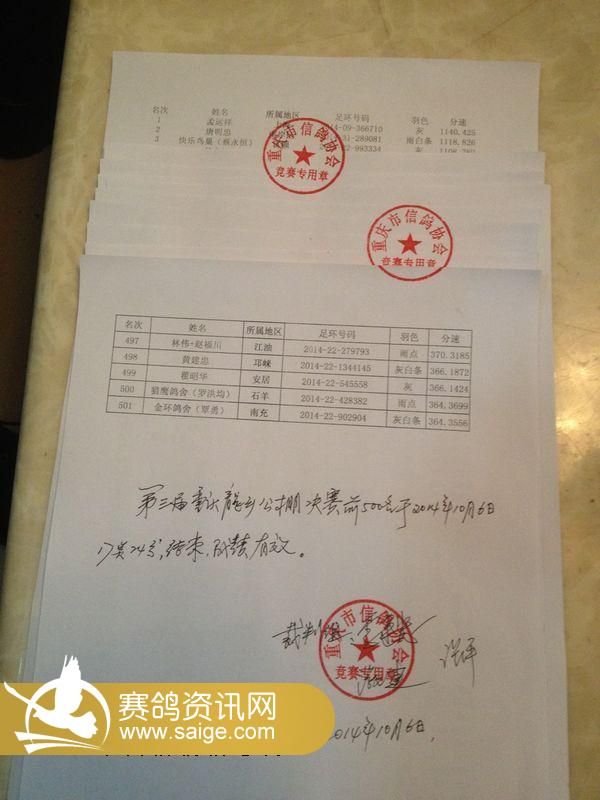 名次 姓名 所属地区 足环号码 羽色 分速
1 孟运祥 14-09-366710 灰 1140.425
2 唐明忠 31-289081 雨白条 1118.826
3 快乐鸟巢（蔡永恒） 22-993334 灰
重庆市信鸽协会
竞赛专用章
重庆市信鸽协会
竞赛专用章
名次 姓名 所属地区 足环号码 羽色 分速
497 林伟+赵福川 江油 2014-22-279793 雨点 370.3185
498 黄建忠 邛崃 2014-22-1344145 灰白条 366.1872
499 瞿昭华 安居 2014-22-545558 灰 366.1424
500 猎鹰鸽舍（罗洪均） 石羊 2014-22-428382 雨点 364.3699
501 金环鸽舍（覃勇） 南充 2014-22-902904 灰白条 364.3556
第三届重庆龙乡公棚决赛前500名于2014年10月6日
17点24分结束，成绩有效。
裁判组：
重庆市信鸽协会
竞赛专用章
2014年10月6日
赛鸽资讯网
www.saige.com